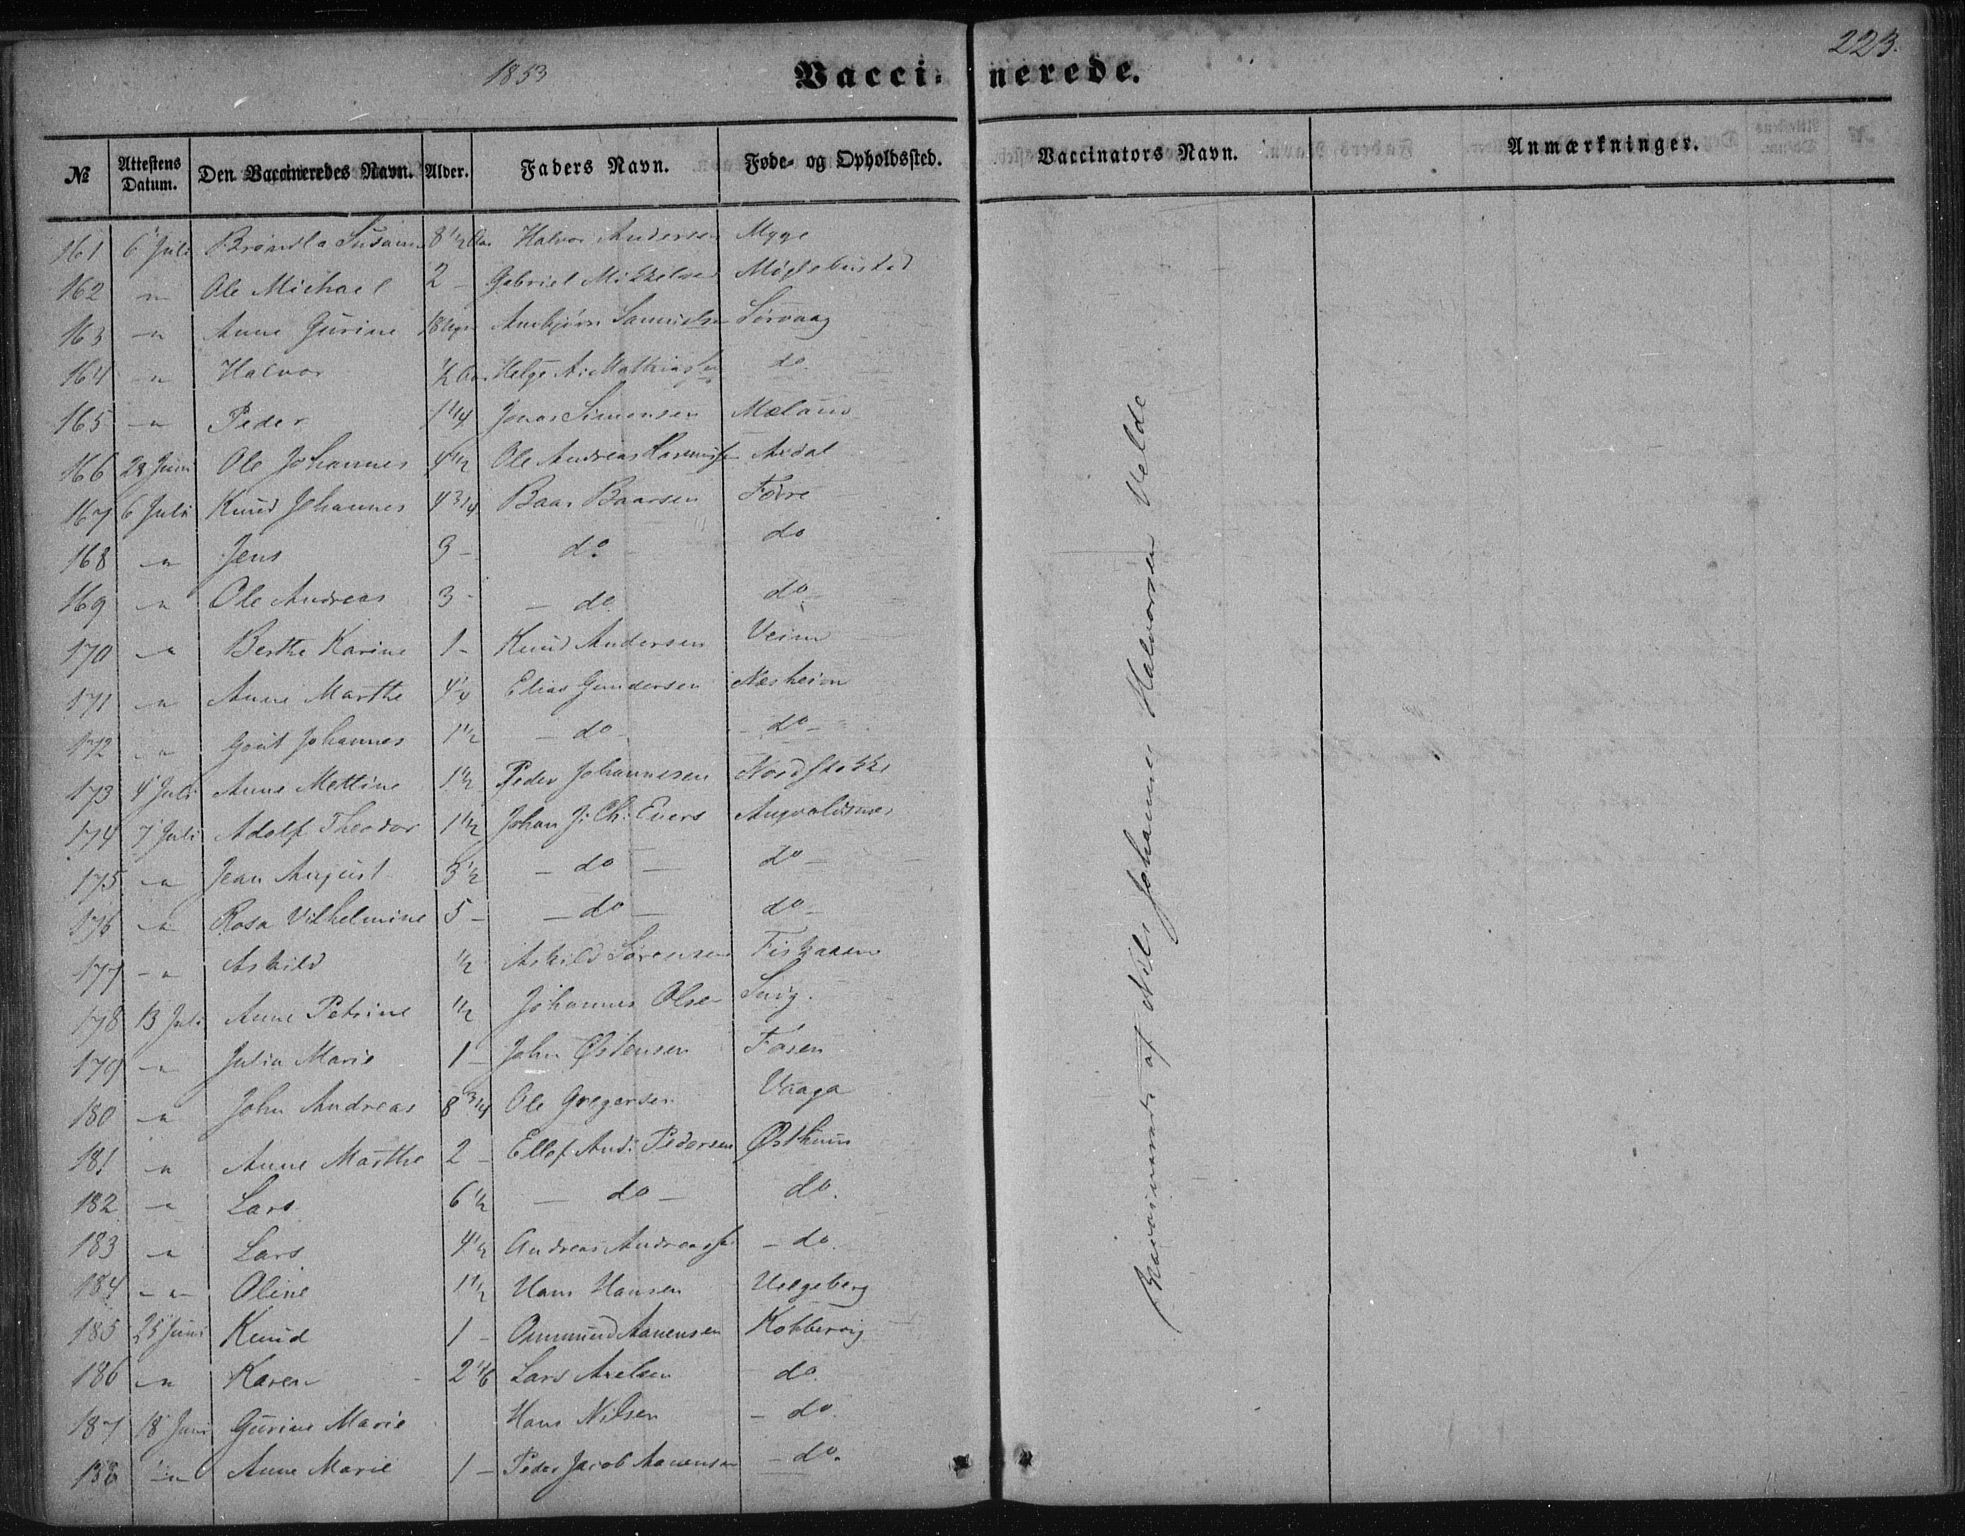 223.
1853
Vaccinerede.
№ | Attestens Datum. | Den Vaccineredes Navn. | Alder. | Faders Navn. | Føde- og Opholdssted. | Vaccinators Navn. | Anmærkninger.
161 | 6 Juli | Brønla Susanne | 8 1/2 Aar | Halvor Andersen | Myge
162 | -"- | Ole Michael | 2 - | Gabriel Mikkelsen
163 | -"- | Anne Gurine | 18 Uger | Ambjørn Samuelsen | Sørvaag
164 | -"- | Halvor | 1/2 Aar | Helge A. Mathiassen | do.
165 | -"- | Peder | 1 1/4 | Jonas Simonsen | Mæland
166 | 28 Juni | Ole Johannes | 4 1/2 | Ole Andreas Rasmussen | Axdal
167 | 6 Juli | Knud Johannes | 4 3/4 | Baar Baarsen | Førre
168 | -"- | Jens | 9 - | do. | do
169 | -"- | Ole Andreas | 3 - | - do | do
170 | -"- | Berthe Karine | 1 - | Knud Andersen | Veim
171 | -"- | Anne Marthe | 4 1/4 | Elias Gundersen | Næsheim
172 | -"- | Gout Johannes | 1 1/2 | - do - | - do -
173 | 4 Juli | Anne Mettine | 1 1/2 | Peder Johannesen | Nordstokke
174 | 7 Juli | Adolf Theodor | 1 1/2 | Johan J. Ch. Evers | Augvaldsnes
175 | -"- | Jean August | 3 1/2 | - do - | do -
176 | -"- | Rosa Vilhelmine | 5 - | - do - | do -
177 | -"- | Askild | 1/2 | Askild Sørensen | Fiskaaen
178 | 13 Juli | Anne Petrine | 1/2 | Johannes Olsen | Snig.
179 | -"- | Julia Marie | 1 - | John Østensen | Fosen
180 | -"- | John Andreas | 8 3/4 | Ole Gregersen | Vaaga
181 | -"- | Anne Marthe | 2 - | Ellef And: Pedersen | Østhuus
182 | -"- | Lars | 6 1/2 | - do - | do.
183 | -"- | Lars | 4 1/2 | Andreas Andreassen | - do.
184 | -"- | Oline | 1 1/2 | Hans Hansen | Helgeberg
185 | 25 Juni | Knud | 1 - | Ommund Aanensen | Kobbervig
186 | -"- | Karen | 2 1/6 | Lars Axelsen | do.
187 | 18 Juni | Gurine Marie | Hans Nilsen | - do.
188 | -"- | Anne Marie | 1 - | Peder Jacob Aanensen | - do.
Vaccinerede af Nils Johannes Halvorsen Velde